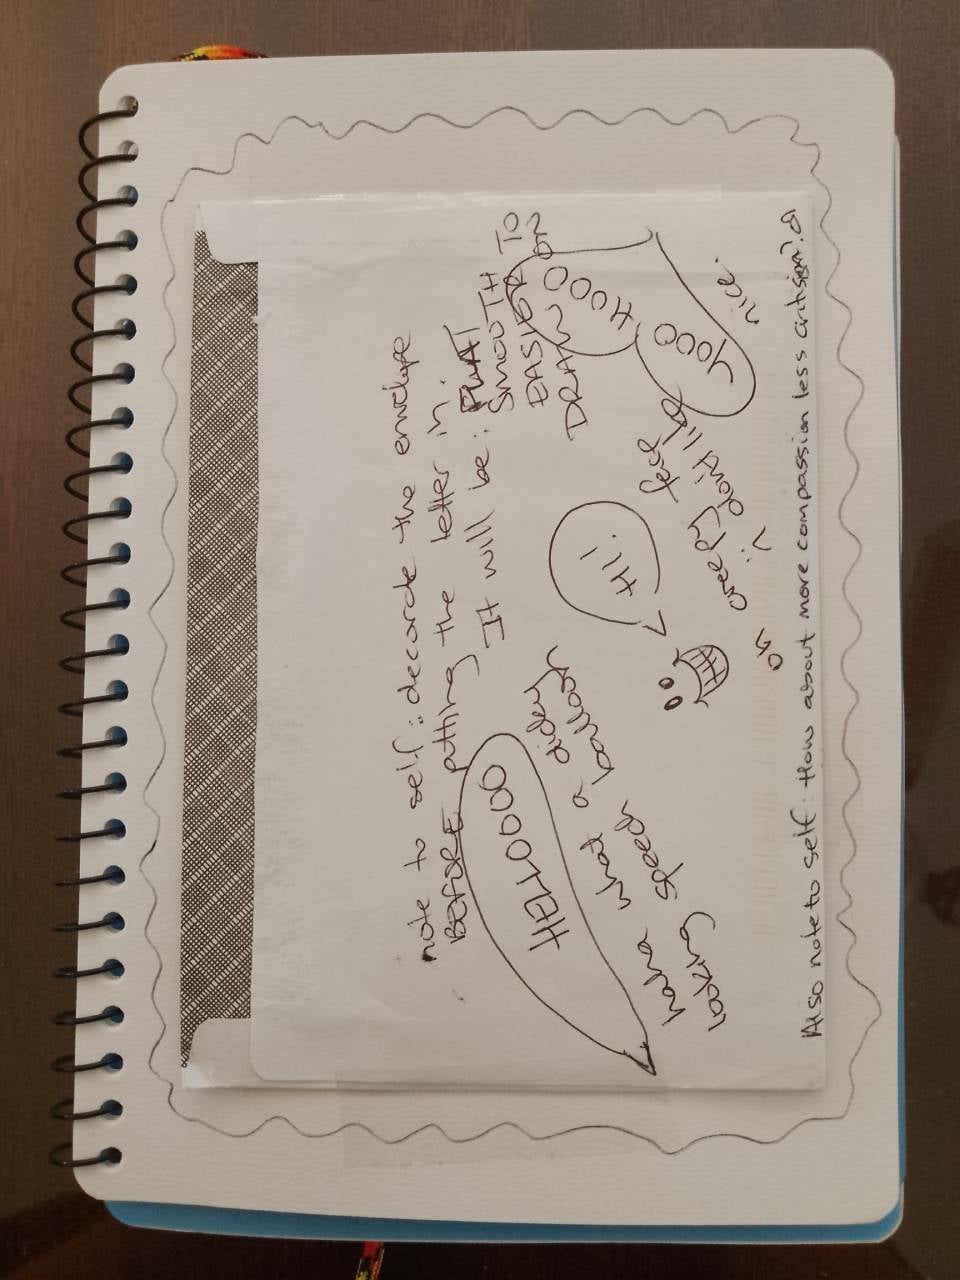 note to self:: decorate the envelope
BEFORE putting the letter in.
It will be: FLAT
SMOOTH
EASIER TO
DRAW ON
HELLOOOO
haha what a didgy
looking speech balloon
HI!
creepy face
oh i don't like
YOOO HOOOOO
nice.
Also note to self: How about more compassion less